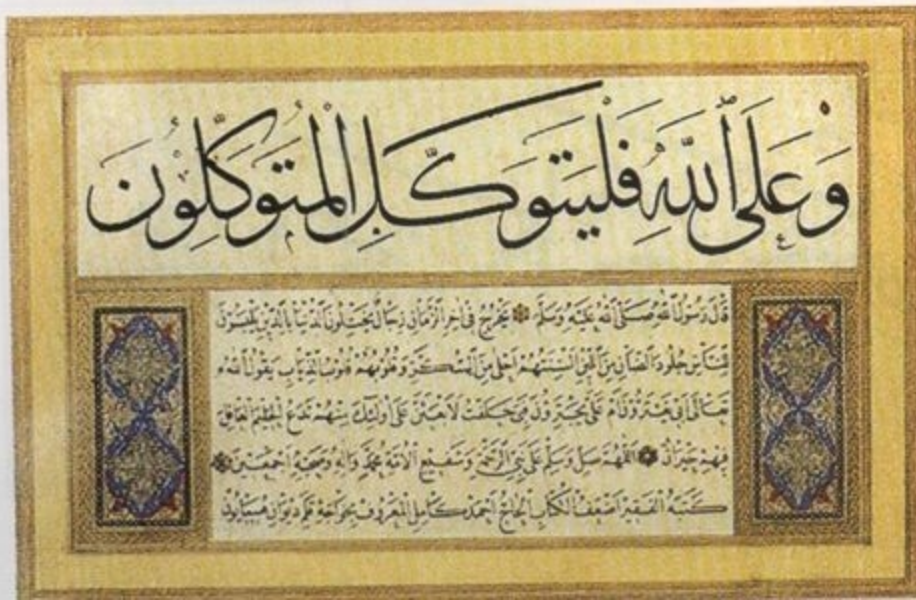 وَعَلَى ٱللّٰهِ فَلْيَتَوَكَّلِ الْمُتَوَكِّلُونَ
قَالَ رَسُولُ اللهِ صَلَّى اللهُ عَلَيْهِ وَسَلَّمَ يَخْرُجُ فِي آخِرِ الزَّمَانِ رِجَالٌ يَخْتِلُونَ الدُّنْيَا بِالدِّينِ يَلْبَسُونَ
لِلنَّاسِ جُلُودَ الضَّأْنِ مِنَ اللِّينِ أَلْسِنَتُهُمْ أَحْلَى مِنَ السُّكَّرِ وَقُلُوبُهُمْ قُلُوبُ الذِّيَابِ يَقُولُ اللهُ
تَعَالَى أَبِي يَغْتَرُّونَ أَمْ عَلَيَّ يَجْتَرِؤُنَ فَبِي حَلَفْتُ لَأَبْعَثَنَّ عَلَى أُولَئِكَ مِنْهُمْ تَدَعُ الْحَلِيمَ
فِيهِمْ حَيْرَانَ اللّٰهُمَّ صَلِّ وَسَلِّمْ عَلَى نَبِيِّ الرَّحْمَةِ وَشَفِيعِ الْأُمَّةِ مُحَمَّدٍ وَآلِهِ وَصَحْبِهِ أَجْمَعِينَ
كَتَبَهُ الْفَقِيرُ أَضْعَفُ الْكُتَّابِ الْحَاجُّ أَحْمَدْ كَامِلْ الْمَعْرُوفْ قَلَمِ دِيوَانِ هُمَايُونْ